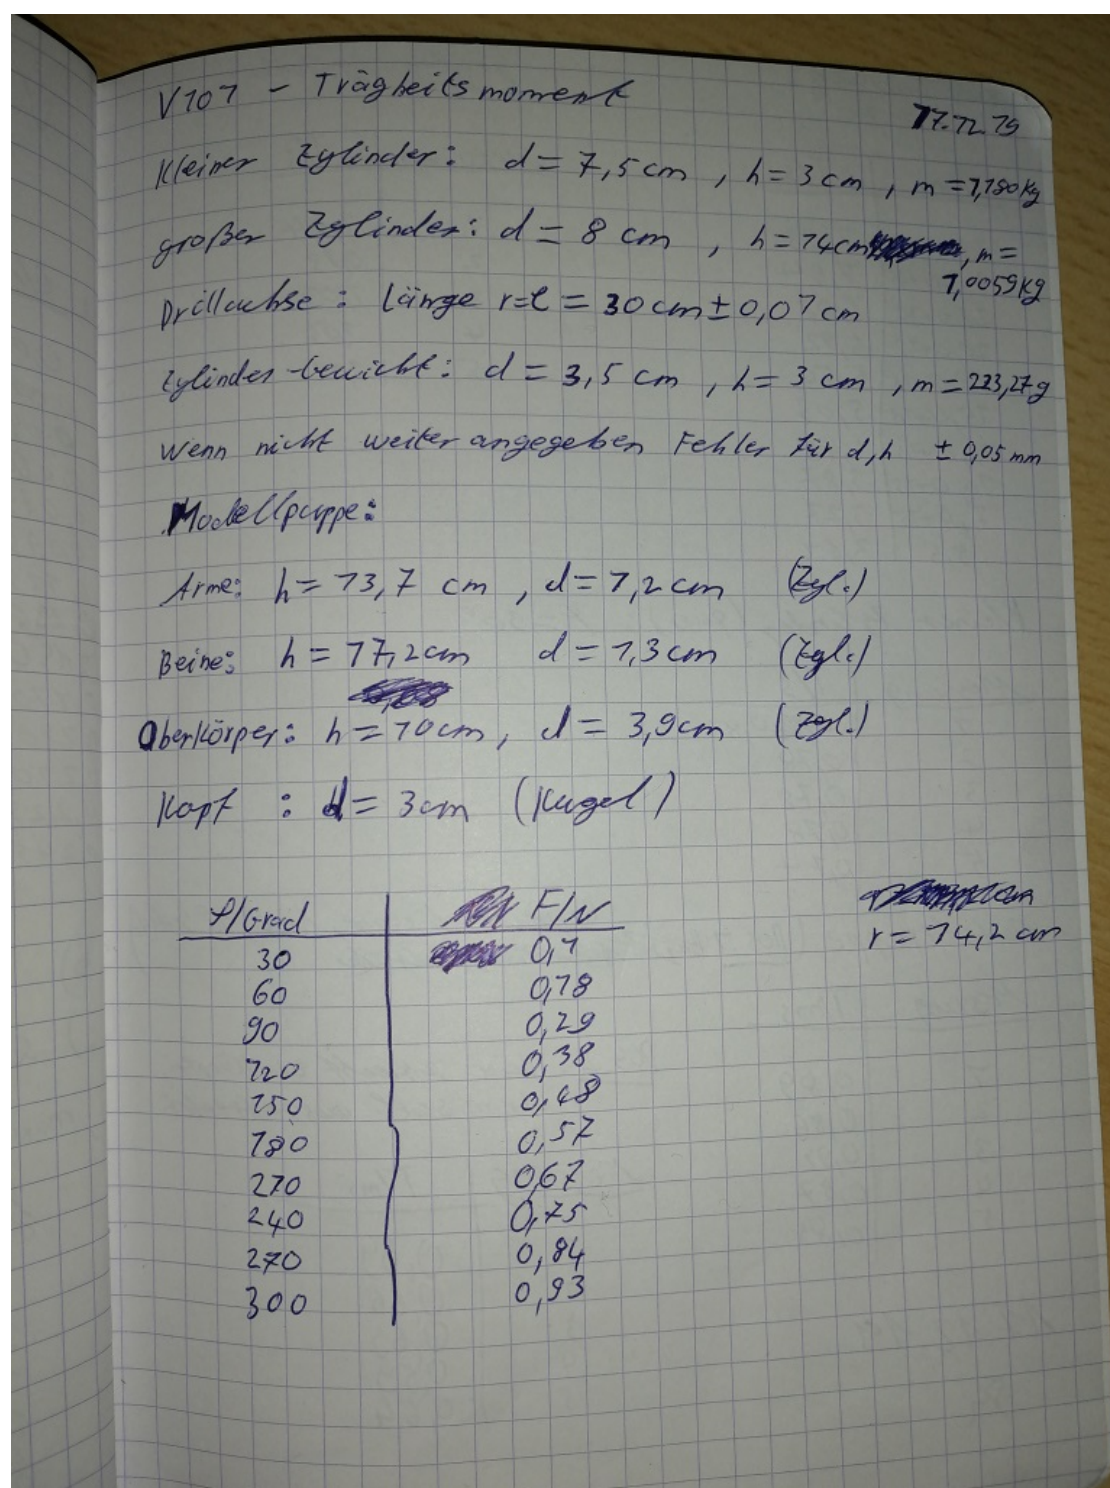 V101 - Trägheitsmoment
17.12.19
Kleiner Zylinder: d = 7,5 cm , h = 3 cm , m = 1,180 kg
großer Zylinder: d = 8 cm , h = 14 cm , m =
1,0059 kg
Drillachse : Länge r=l = 30 cm ± 0,01 cm
Zylinder-Gewicht: d = 3,5 cm , h = 3 cm , m = 223,27 g
Wenn nicht weiter angegeben Fehler für d,h ± 0,05 mm
Modellpuppe:
Arme: h = 13,7 cm , d = 1,2 cm (Zyl.)
Beine: h = 17,2 cm d = 1,3 cm (Zyl.)
Oberkörper: h = 10 cm , d = 3,9 cm (Zyl.)
Kopf : d = 3 cm (Kugel)
φ/Grad F/N
r = 14,2 cm
30 0,1
60 0,18
90 0,29
120 0,38
150 0,48
180 0,57
210 0,67
240 0,75
270 0,84
300 0,93